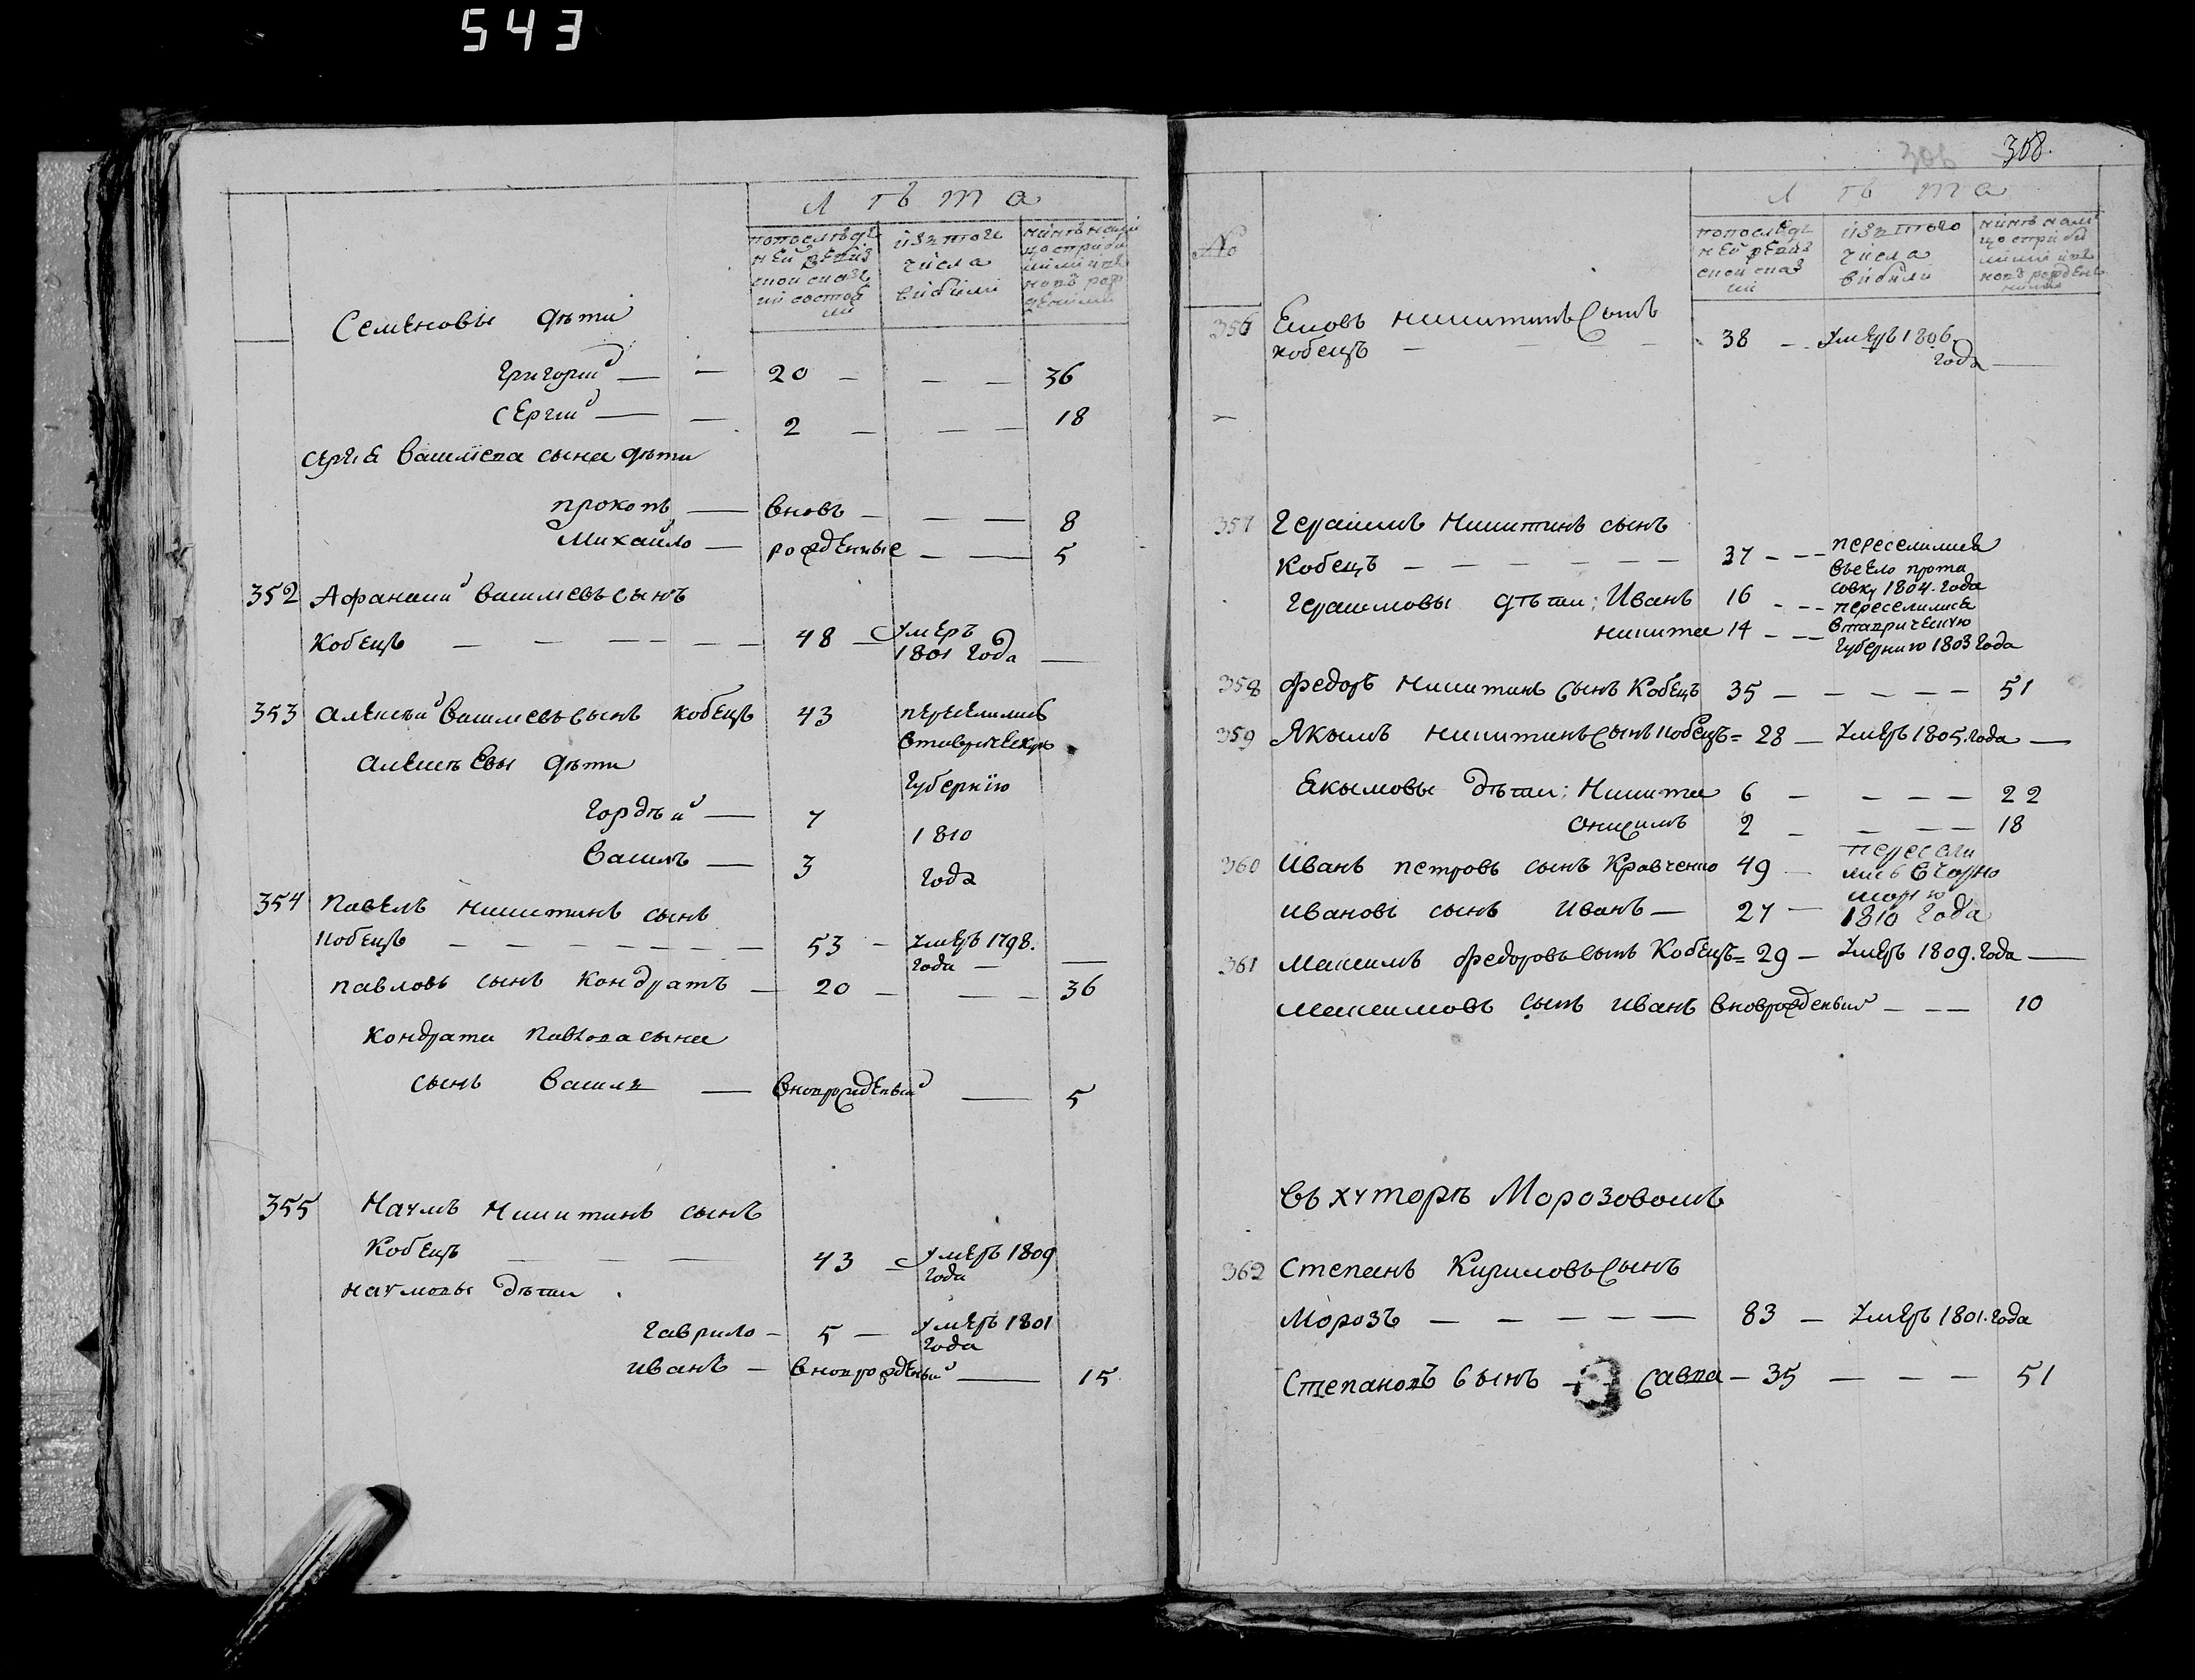 543
Лѣта
попослѣд
ней ревиз
ской сказ
ки состоя
ли
изъ того
числа
выбыли
Семеновы дѣти
Григорий — — 20 — — — 36
Сергий — — 2 — — — 18
Сергѣя Василіева сына дѣти
прокопъ — вновь — — — 8
Михайло — рожденные — — 5
352 Афанаий Василиевъ сынъ
Кобецъ — — — — — 48 — умеръ
1801 Года —
353 Алексѣй Василиевъ сынъ кобецъ 43 переселились
втаврическую
Алексѣевы дѣти
Губернїю
Гордѣй — 7
1810
Василъ — 3
Года
354 Павелъ Никитинъ сынъ
Кобецъ — — — — — — — 53 — умеръ 1798.
года — —
павловъ сынъ Кондратъ — 20 — — — 36
Кондрата Павлова сына
сынъ Василь — вноврожденый — 5
355 Наумъ Никитинъ сынъ
Кобецъ — — — 43 — умеръ 1809
года
наумовы дѣти
Гаврило — 5 — умеръ 1801
года
иванъ — вноврожденый — 15
306 308.
№
Лѣта
попослѣд
ней ревиз
ской сказ
ки
изъ того
числа
выбыли
356 Яковъ никитинъ сынъ
кобецъ — — — — 38 — умеръ 1806.
Года —
357 Герасимъ Никитинъ сынъ
Кобецъ — — — — — — 37 - - - переселился
всело прота
совку 1804. года
Герасимовы дѣти: Иванъ 16 - - - переселились
втаврическую
никита 14 - - - Губернию 1803 Года
358 Федоръ Никитинъ сынъ Кобецъ 35 — — — — — 51
359 Якымъ никитинъ сынъ кобецъ = 28 — умеръ 1805. года —
Якымовы дѣти: Никита 6 — — — — 22
Онисимъ 2 — — — — 18
360 Иванъ петровъ сынъ Кравченко 49 — пересели
лись вчорно
морию
ивановъ сынъ Иванъ — 27 — 1810 Года
361 Максимъ Федоровъ сынъ Кобецъ = 29 — умеръ 1809. года —
Максимовъ сынъ иванъ вноврожденый — — — 10
въ хуторѣ Морозовомъ
362 Степанъ Кириловъ сынъ
Морозъ — — — — — 83 — умеръ 1801. года
Степановъ сынъ — Савва — 35 — — — — 51